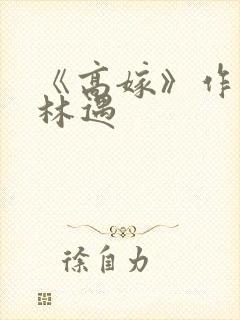 《高嫁》作
林遇
徐自力